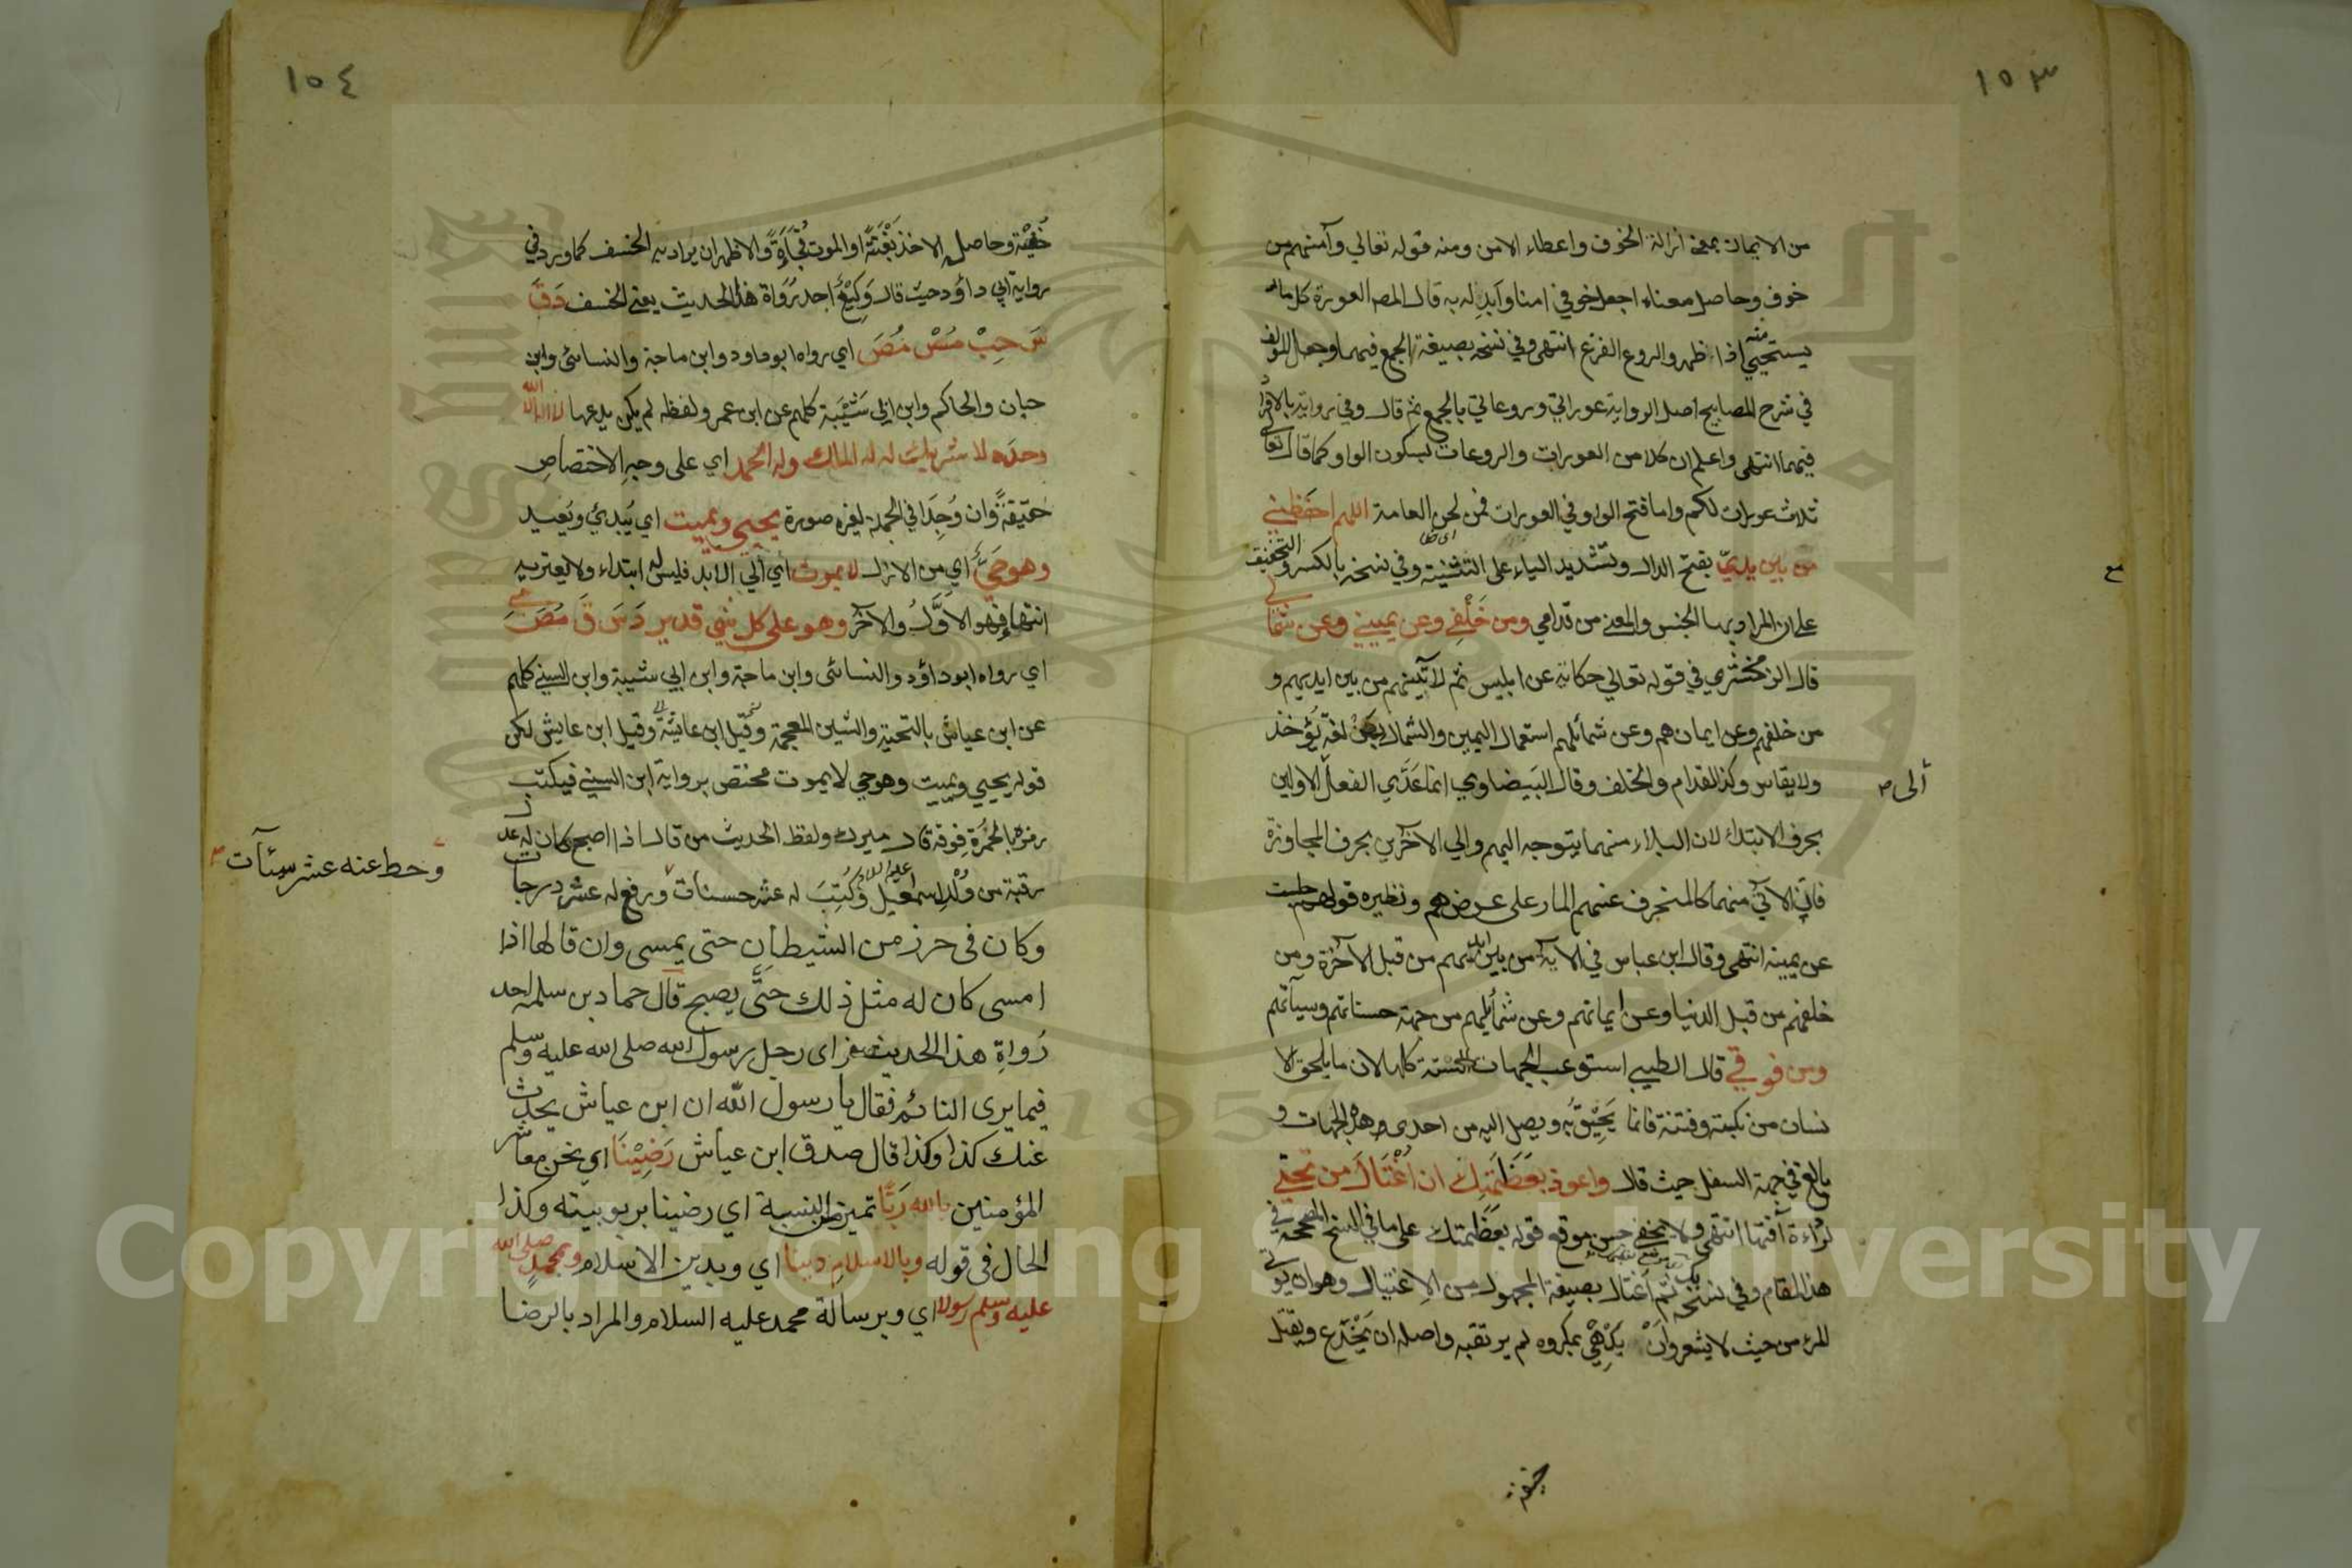 ١٥٣
من الايمان بمعنى ازالة الخوف واعطاء الامن ومنه قوله تعالي وآمنهم من
خوف وحاصل معناه اجعل خوفي امنا وابدله به قال المصـ العورة كل ما
يستحيي منه اذا ظهر والروع الفزع انتهى وفي نسخة بصيغة الجمع فيهما وجعل المولف
في شرح المصابيح اصل الرواية عوراتي وروعاتي بالجمع ثم قال وفي رواية بالافراد
فيهما انتهى واعلم ان كلا من العورات والروعات بسكون الواو كما قال تعالى
ثلاث عورات لكم واما فتح الواو في العورات فمن لحن العامة اللهم احفظني
من بين يديّ بفتح الدال وتشديد الياء على التثنية وفي نسخة بالكسر والتخفيف
على ان المراد بها الجنس والمعنى من قدامي ومن خَلْفِي وعن يميني وعن شمالي
قال الزمخشري في قوله تعالي حكاية عن ابليس ثم لآتينهم من بين ايديهم و
من خلفهم وعن ايمانهم وعن شمائلهم استعمال اليمين والشمال لغة تُؤخذ
ولا يقاس وكذا القدام والخلف وقال البيضاوي انما عَدَّي الفعل الاولين
ألى
بحرف الابتداء لان البلاء منهما يتوجه اليهم والي الآخرين بحرف المجاوزة
فان الآتي منهما كالمنحرف عنهم المار على عرضهم ونظيره قولهم جلست
عن يمينه انتهى وقال ابن عباس في الآية من بين ايديهم من قبل الآخرة ومن
خلفهم من قبل الدنيا وعن ايمانهم وعن شمائلهم من جهة حسناتهم وسيآتهم
ومن فوقي قال الطيبي استوعب الجهات الستة كلها لان ما يلحق الا
نسان من نكبة وفتنة فانما يَحِيْقُ به ويصل اليه من احدى هذه الجهات و
بالغ في جهة السفل حيث قال واعوذ بعَظَمَتِكَ ان اُغْتَالَ من تحتي
لرداءة آفتها انتهى ولا يخفى حسن موقع قوله بعَظَمتك على ما في النسخ المصححة في
هذا المقام وفي نسخة بك ثم اُغتال بصيغة المجهول من الاِغتيال وهو ان يؤتى
المرء من حيث لا يشعر وان يُدْهَى بمكروه لم يرتقبه واصله ان يُخْدَع ويقتل
خفية
١٥٤
خُفْيَة وحاصله الاخذ بَغْتَةً او الموت فُجَاءَةً والاظهر ان يراد به الخسف كما ورد في
رواية ابي داؤد حيث قال وَكِيْعٌ احد رُوَاة هذا الحديث يعني الخسف دَقَ
سَ حِبْ مُسْ مُصَ اي رواه ابو داود وابن ماجة والنسائي وابن
حبان والحاكم وابن ابي شَيْبَة كلهم عن ابن عمر ولفظه لم يكن يدعها لا اله الا الله
وحدَه لا شريك له له الملك وله الحمد اي على وجه الاختصاص
حقيقةً وان وُجِدَا في الجملة لغيره صورة يحيي ويميت اي يُبدئ ويُعيد
وهو حَيٌّ اي من الازل لا يموت اي الي الابد فليس له ابتداء ولا يعتريه
انتهاء فهو الاوَّلُ والآخر وهو على كل شئ قدير دَ سَ قَ مُصَ ي
اي رواه ابو داؤد والنسائى وابن ماجة وابن ابي شيبة وابن السني كلهم
عن ابن عياش بالتحتية والشين المعجمة وقيل ابن عايشة وقيل ابن عايش لكن
قوله يحيي ويميت وهو حي لا يموت مختص برواية ابن السني فيكتب
رمزه بالحُمْرَة فوقه قال ميرك ولفظ الحديث من قال اذا اصبح كان له عدل
رقبة من وُلْدِ اسمعيل عليه السلام وكُتِبَ له عشر حسنات ورفع له عشر درجات
وحط عنه عشر سيئآت
وكان فى حرز من الشيطان حتى يمسى وان قالها اذا
امسى كان له مثل ذلك حَتَّى يصبح قال حماد بن سلمه احد
رُواةِ هذا الحديث فراى رجل رسول الله صلى الله عليه وسلم
فيما يرى النائم فقال يا رسول الله ان ابن عياش يحدث
عنك كذا وكذا قال صدق ابن عياش رَضِيْنَا اي نحن معاشر
المؤمنين بالله رَبًّا تميز النسبة اي رضينا بربوبيته وكذا
الحال فى قوله وبالاسلامِ دينا اي وبدين الاسلام وبمحمدٍ صلى الله
عليه وسلم رسولا اي وبرسالة محمد عليه السلام والمراد بالرضا
Copyright © King Saud University
1957